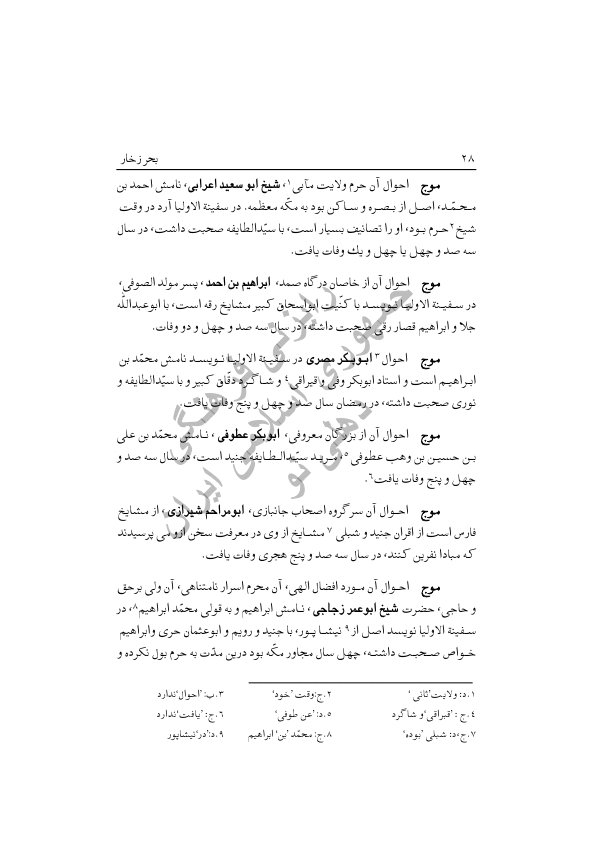 ۲۸ بحر زخار
موج احوال آن حرم ولایت مآبی۱، شیخ ابو سعید اعرابی، نامش احمد بن
محمّد، اصل از بصره و ساکن بود به مکّه معظمه. در سفینة الاولیا آرد در وقت
شیخ۲ حرم بود، او را تصانیف بسیار است، با سیّدالطایفه صحبت داشت، در سال
سه صد و چهل یا چهل و یك وفات یافت.
موج احوال آن از خاصان درگاه صمد، ابراهیم بن احمد، پسر مولد الصوفی،
در سفینة الاولیا نویسد با کنّیت ابواسحاق کبیر مشایخ رقه است، با ابوعبدالله
جلا و ابراهیم قصار رقی صحبت داشته، در سال سه صد و چهل و دو وفات.
موج احوال۳ ابوبکر مصری در سفینة الاولیا نویسد نامش محمّد بن
ابراهیم است و استاد ابوبکر وفی واقیراقی۴ و شاگرد دقّاق کبیر و با سیّدالطایفه و
نوری صحبت داشته، در رمضان سال صد و چهل و پنج وفات یافت.
موج احوال آن از بزرگان معروفی، ابوبکر عطوفی، نامش محمّد بن علی
بن حسین بن وهب عطوفی۵، مرید سیّدالطایفه جنید است، در سال سه صد و
چهل و پنج وفات یافت۶.
موج احوال آن سرگروه اصحاب جانبازی، ابومراحم شیرازی، از مشایخ
فارس است از اقران جنید و شبلی۷ مشایخ از وی در معرفت سخن ازو می پرسیدند
که مبادا نفرین کنند، در سال سه صد و پنج هجری وفات یافت.
موج احوال آن مورد افضال الهی، آن محرم اسرار نامتناهی، آن ولی برحق
و حاجی، حضرت شیخ ابوعمر زجاجی، نامش ابراهیم و به قولی محمّد ابراهیم۸، در
سفینة الاولیا نویسد اصل از۹ نیشا پور، با جنید و رویم و ابوعثمان حری وابراهیم
خواص صحبت داشته، چهل سال مجاور مکّه بود درین مدّت به حرم بول نکرده و
۱.د: ولایت‘ثانی‘ ۲.ج:وقت ‘خود‘ ۳.ب: ‘احوال‘ندارد
۴.ج : ‘قیراقی‘ و شاگرد ۵.د: ‘عن طوفی‘ ۶.ج: ‘یافت‘ندارد
۷.ج،د: شبلی ‘بوده‘ ۸.ج: محمّد ‘بن‘ ابراهیم ۹.د: ‘در‘نیشاپور
رایزنی فرهنگی
جمهوری اسلامی ایران
دهلی نو